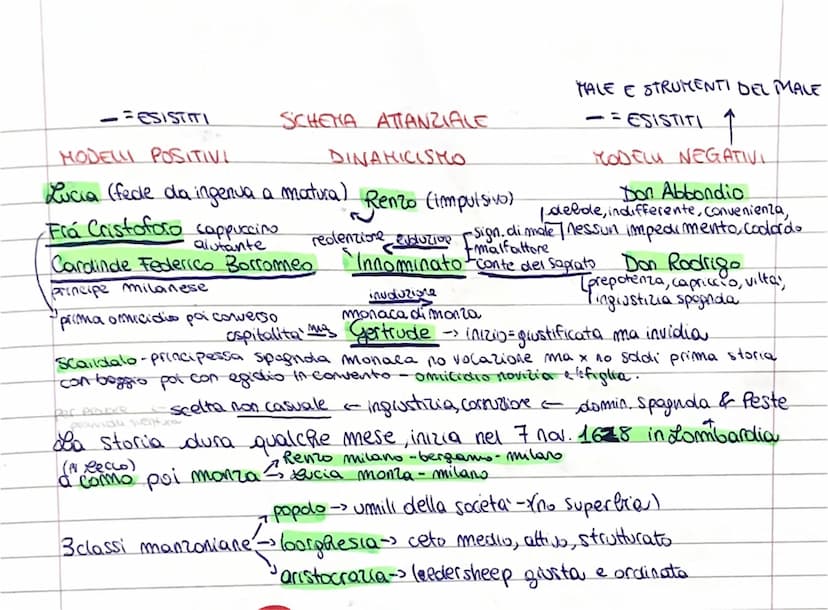 MALE E STRUMENTI DEL MALE
— = ESISTITI SCHEMA ATTANZIALE — = ESISTITI
MODELLI POSITIVI DINAMICISMO MODELLI NEGATIVI
Lucia (fede da ingenua a matura) Renzo (impulsivo) Don Abbondio
Frá Cristoforo cappuccino
aiutante
redenzione ← evoluzione
sign. di male
malfattore
conte del Sagrato
debole, indifferente, convenienza,
nessun impedimento, codardo
Cardinale Federico Borromeo Innominato Don Rodrigo
principe milanese
prepotenza, capriccio, viltà,
ingiustizia spagnola
involuzione →
prima omicidio poi converso monaca di monza
ospitalità Gertrude → inizio=giustificata ma invidia
Scandalo - principessa spagnola monaca no vocazione ma x no soldi prima storia
con paggio poi con egidio in convento - omicidio novizia e figlia.
scelta non casuale ← ingiustizia, corruzione ← domin. spagnola & Peste
La storia dura qualche mese, inizia nel 7 nov. 1628 in Lombardia
(A LECCO) Renzo milano - bergamo - milano
a como poi monza → Lucia monza - milano
popolo → umili della società - (no superbia)
3 classi manzoniane → borghesia → ceto medio, attivo, strutturato
aristocrazia → leedersheep giusta e ordinata